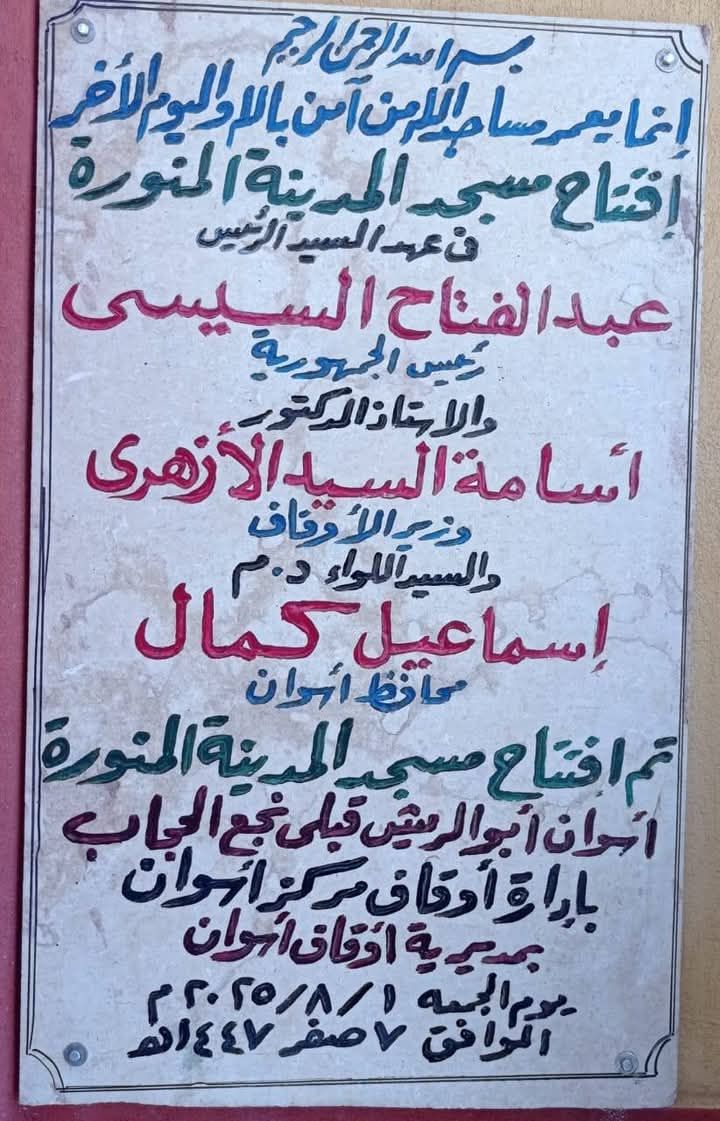 بسم الله الرحمن الرحيم
إنما يعمر مساجد الله من آمن بالله واليوم الأخر
إفتتاح مسجد المدينة المنورة
فى عهد السيد الرئيس
عبد الفتاح السيسى
رئيس الجمهورية
والاستاذ الدكتور
أسامة السيد الأزهرى
وزير الأوقاف
والسيد اللواء د.م
إسماعيل كمال
محافظ أسوان
تم إفتتاح مسجد المدينة المنورة
أسوان أبو الريش قبلى نجع الحجاب
بإدارة أوقاف مركز أسوان
بمديرية أوقاف أسوان
يوم الجمعه ١/٨/٢٠٢٥ م
الموافق ٧ صفر ١٤٤٧هـ